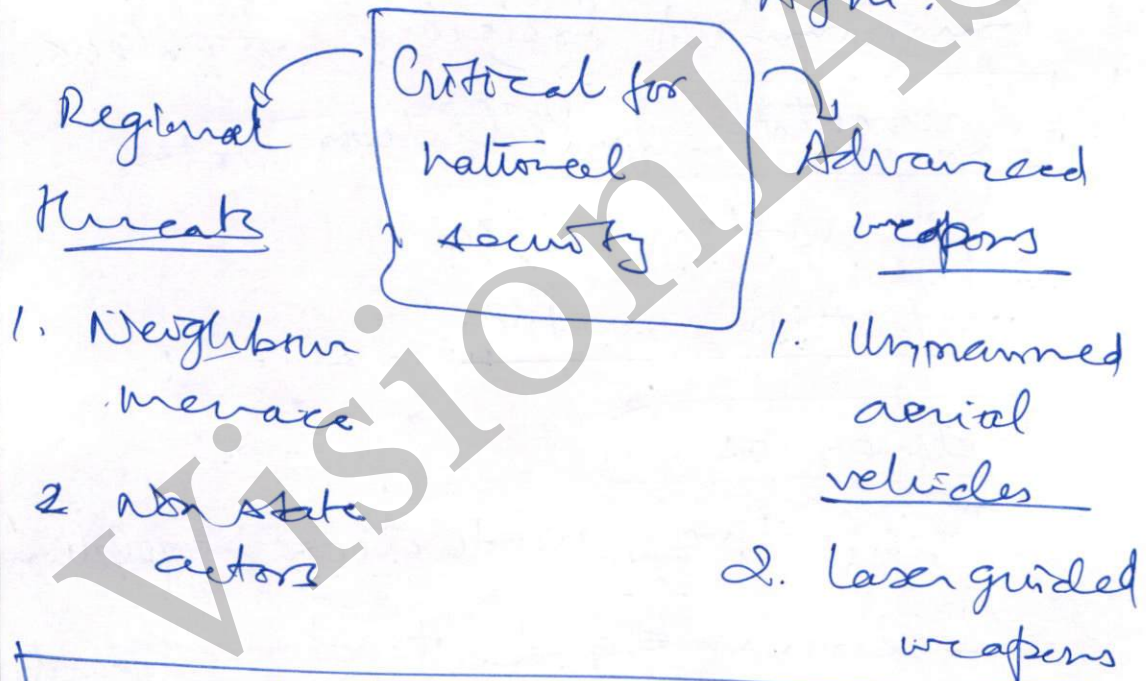 Critical for
national
security
Regional
threats
1. Neighbour
menace
2 Non state
actors
Advanced
weapons
1. Unmanned
aerial
vehicles
2. Laser guided
weapons
VisionIAS